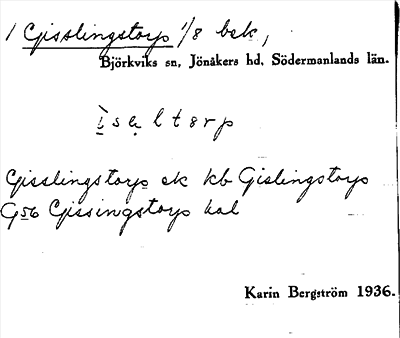 1 Gisslingstorp 1/8 bsk,
Björkviks sn, Jönåkers hd, Södermanlands län.
ìsẹltɘrp
Gisslingstorp ek kb Gislingstorp
G56 Gissingstorp hal
Karin Bergström 1936.